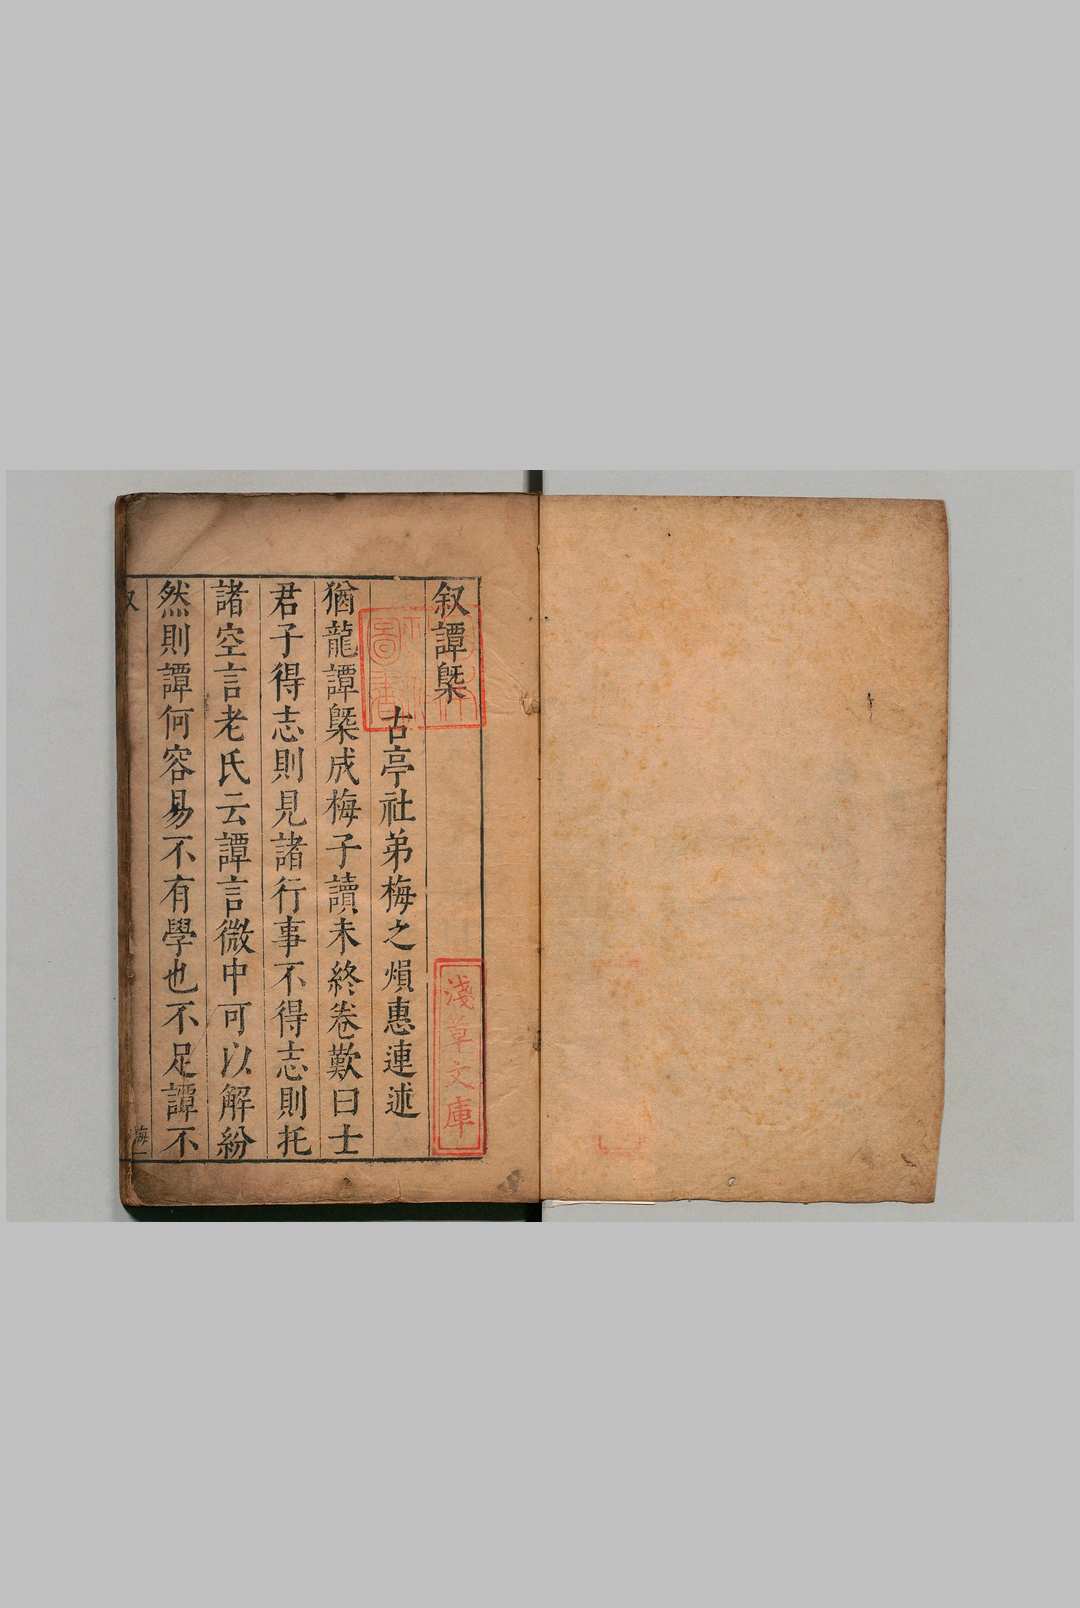 叙譚槩
古亭社弟梅之熉惠連述
猶龍譚槩成梅子讀未終卷歎曰士
君子得志則見諸行事不得志則托
諸空言老氏云譚言微中可以解紛
然則譚何容易不有學也不足譚不
叙
梅一
淺草文庫
圖書